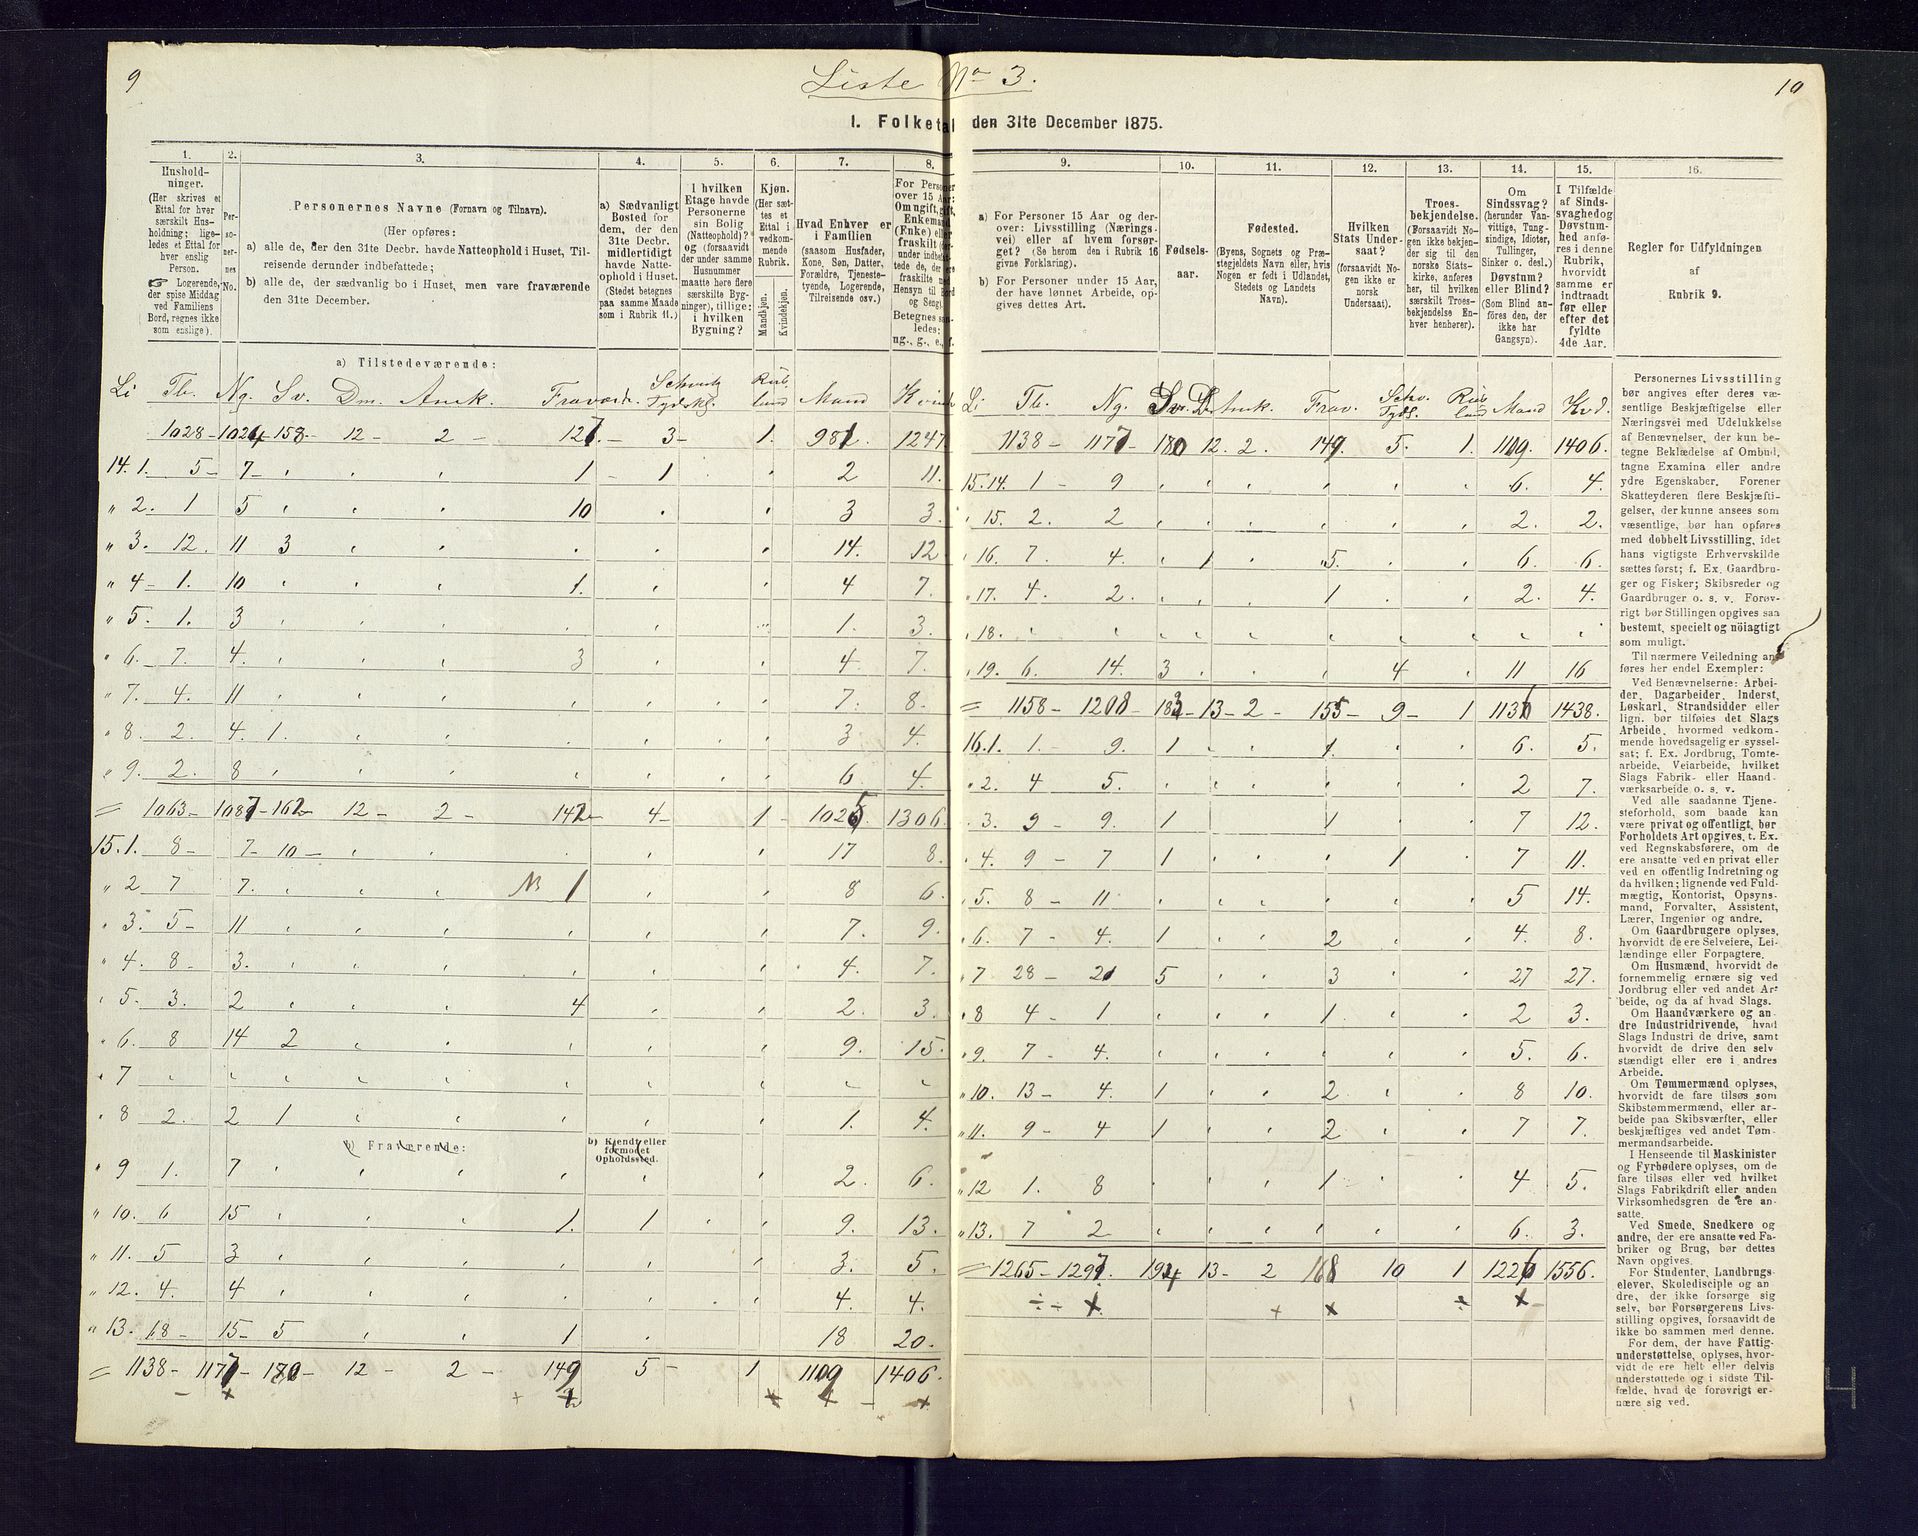 9
Liste No 3.
10
1. Folketal den 31te December 1875.
1. 2. 3. 4. 5. 6. 7. 8. 9. 10. 11. 12. 13. 14. 15. 16.
Hushold-
ninger.
(Her skrives et
Ettal for hver
særskilt Hus-
holdning; lige-
ledes et Ettal for
hver enslig
Person.
☞ Logerende,
der spise Middag
ved Familiens
Bord, regnes ikke
som enslige).
Per-
so-
ner-
nes
No.
Personernes Navne (Fornavn og Tilnavn).
(Her opføres:
a) alle de, der den 31te Decbr. havde Natteophold i Huset, Til-
reisende derunder indbefattede;
b) alle de, der sædvanlig bo i Huset, men vare fraværende
den 31te December.
a) Sædvanligt
Bosted for
dem, der den
31te Decbr.
midlertidigt
havde Natte-
ophold i Huset.
(Stedet betegnes
paa samme Maade
som i Rubrik 11.)
I hvilken
Etage havde
Personerne
sin Bolig
(Natteophold)?
og (forsaavidt
der under samme
Husnummer
maatte høre flere
særskilte Byg-
ninger), tillige:
i hvilken
Bygning?
Kjøn.
(Her sæt-
tes et
Ettal i
vedkom-
mende
Rubrik.
Mandkjøn.
Kvindekjøn.
Hvad Enhver er
i Familien
(saasom Husfader,
Kone, Søn, Datter,
Forældre, Tjeneste-
tyende, Logerende,
Tilreisende osv.)
For Personer
over 15 Aar:
Om ugift, gift,
Enkemand
(Enke) eller
fraskilt
Betegnes saa-
ledes:
ug., g., e., f.
a) For Personer 15 Aar og der-
over: Livsstilling (Nærings-
vei) eller af hvem forsør-
get? (Se herom den i Rubrik 16
givne Forklaring).
b) For Personer under 15 Aar,
der have lønnet Arbeide, op-
gives dettes Art.
Fødsels-
aar.
Fødested.
(Byens, Sognets og Præ-
stegjeldets Navn eller, hvis
Nogen er født i Udlandet,
Stedets og Landets
Navn).
Hvilken
Stats Under-
saat?
(forsaavidt No-
gen ikke er
norsk
Undersaat).
Troes-
bekjendelse.
(Forsaavidt No-
gen ikke bekjen-
der sig til den
norske Stats-
kirke, anføres
her, til hvilken
særskilt Troes-
bekjendelse En-
hver henhører).
Om
Sindssvag?
(herunder Van-
vittige, Tung-
sindige, Idioter,
Tullinger,
Sinker o. desl.)
Døvstum?
eller Blind?
(Som Blind an-
føres den, der
ikke har
Gangsyn).
I Tilfælde
af Sinds-
svaghed og
Døvstum-
hed anfø-
res i denne
Rubrik,
hvorvidt
samme er
indtraadt
før eller
efter det
fyldte
4de Aar.
Regler for Udfyldningen
af
Rubrik 9.
a) Tilstedeværende:
Li Tb. Ng. Sv. Dm. Amk. Fravær. Schweitz Tydskl. Rusland Mand Kvinde
1028 - 1024 158 - 12 - 2 - 127 - 3 - 1. 981 1247
14. 1. 5 - 7 - 1 - 1 2 11.
" 2. 1 5 10 3 3.
" 3. 12. 11 3 14. 12
" 4 1. 10 1. 4 7.
" 5. 1. 3 1. 3.
" 6. 7. 4. 3 4 7.
" 7. 4. 11 7. 8.
" 8. 2. 4. 1. 3 4.
" 9. 2. 8 6 4.
= 1063 - 1087 - 162 - 12 - 2 - 142 - 4 - 1 - 1025 1306.
15. 1. 8 - 7 - 10 - 17 8.
" 2 7 7. 1 8 6.
" 3. 5 - 11 7. 9.
" 4. 8 - 3. 4. 7.
" 5. 3. 2 4 2. 3.
" 6. 8 14 2 9. 15.
" 7
" 8 2. 2 1 1. 4.
b) Fraværende:
b) Kjendt eller
formodet
Opholdssted.
" 9 1. 7 2. 6.
" 10. 6 15 1. 1 9. 13.
" 11. 5 3 3. 5.
" 12. 4. 4 4. 4.
" 13. 18 - 15 - 5 1 18 20.
= 1138 - 1177 - 180 - 12 - 2 - 149 5 - 1 1109 1406.
Li Tb. Ng. Sv. D. Amk. Frav. Schv. Tyds. Rusland Mand Kvd.
1138 - 1177 - 180 12. 2. 149. 5. 1. 1109. 1406.
15. 14. 1 - 9 6. 4.
" 15. 2. 2 2. 2.
" 16. 7. 4. 1 5. 6. 6.
" 17. 4. 2. 1 2. 4.
" 18.
" 19. 6. 14. 3 4 11 16
= 1158 - 1208 - 183 - 13 - 2 - 155 - 9 - 1 1136 1438.
16. 1. 1. - 9. 1 1. 6. 5.
" 2. 4 5. 2 7.
" 3. 9 - 9. 1 1 7 12.
" 4. 9 - 7 1 1 7 11.
" 5. 8 - 11 5 14.
" 6. 7 - 4. 1 2 4. 8.
" 7 28 - 21 5 3 27 27.
" 8 4 - 1 1 2 3.
" 9. 7 - 4. 5. 6.
" 10. 13 - 4. 1 2 8 10.
" 11. 9 - 4 1 2 7 7.
" 12 1. 8 1 4 5.
" 13. 7 2 6. 3.
= 1265 - 1297. 194 13 - 2 168 10 1 1226 1556.
Personernes Livsstilling
bør angives efter deres væ-
sentlige Beskjæftigelse eller
Næringsvei med Udelukkelse
af Benævnelser, der kun be-
tegne Beklædelse af Ombud,
tagne Examina eller andre
ydre Egenskaber. Forener
Skatteyderen flere Beskjæfti-
gelser, der kunne ansees som
væsentlige, bør han opføres
med dobbelt Livsstilling, idet
hans vigtigste Erhvervskilde
sættes først; f. Ex. Gaardbru-
ger og Fisker; Skibsreder og
Gaardbruger o. s. v. Forøv-
rigt bør Stillingen opgives saa
bestemt, specielt og nöiagtigt
som muligt.
Til nærmere Veiledning an-
føres her endel Exempler:
Ved Benævnelserne: Arbei-
der, Dagarbeider, Inderst,
Løskarl, Strandsidder eller
lign. bør tilføies det Slags
Arbeide, hvormed vedkom-
mende hovedsagelig er syssel-
sat; f. Ex. Jordbrug, Tomte-
arbeide, Veiarbeide, hvilket
Slags Fabrik- eller Haand-
værksarbeide o. s. v.
Ved alle saadanne Tjene-
steforhold, som baade kan
være privat og offentligt, bør
Forholdets Art opgives, t. Ex.
ved Regnskabsførere, om de
ere ansatte ved en privat eller
ved en offentlig Indretning og
da hvilken; lignende ved Fuld-
mægtig, Kontorist, Opsyns-
mand, Forvalter, Assistent,
Lærer, Ingeniør og andre.
Om Gaardbrugere oplyses,
hvorvidt de ere Selveiere, Lei-
lændinge eller Forpagtere.
Om Husmænd, hvorvidt de
fornemmelig ernære sig ved
Jordbrug eller ved andet Ar-
beide, og da af hvad Slags.
Om Haandværkere og an-
dre Industridrivende, hvad
Slags Industri de drive, samt
hvorvidt de drive den selv-
stændigt eller ere i andres
Arbeide.
Om Tømmermænd oplyses,
hvorvidt de fare tilsøs som
Skibstømmermænd, eller ar-
beide paa Skibsværfter, eller
beskjæftiges ved andet Tøm-
mermandsarbeide.
I Henseende til Maskinister
og Fyrbødere oplyses, om de
fare tilsøs eller ved hvilket
Slags Fabrikdrift eller anden
Virksomhedsgren de ere an-
satte.
Ved Smede, Snedkere og
andre, der ere ansatte ved Fa-
briker og Brug, bør dettes
Navn opgives.
For Studenter, Landbrugs-
elever, Skoledisciple og an-
dre, der ikke forsørge sig
selv, bør Forsørgerens Livs-
stilling opgives, forsaavidt de
ikke bo sammen med denne.
For dem, der have Fattig-
understøttelse, oplyses, hvor-
vidt de ere helt eller delvis
understøttede og i sidste Til-
fælde, hvad de forøvrigt er-
nære sig ved.